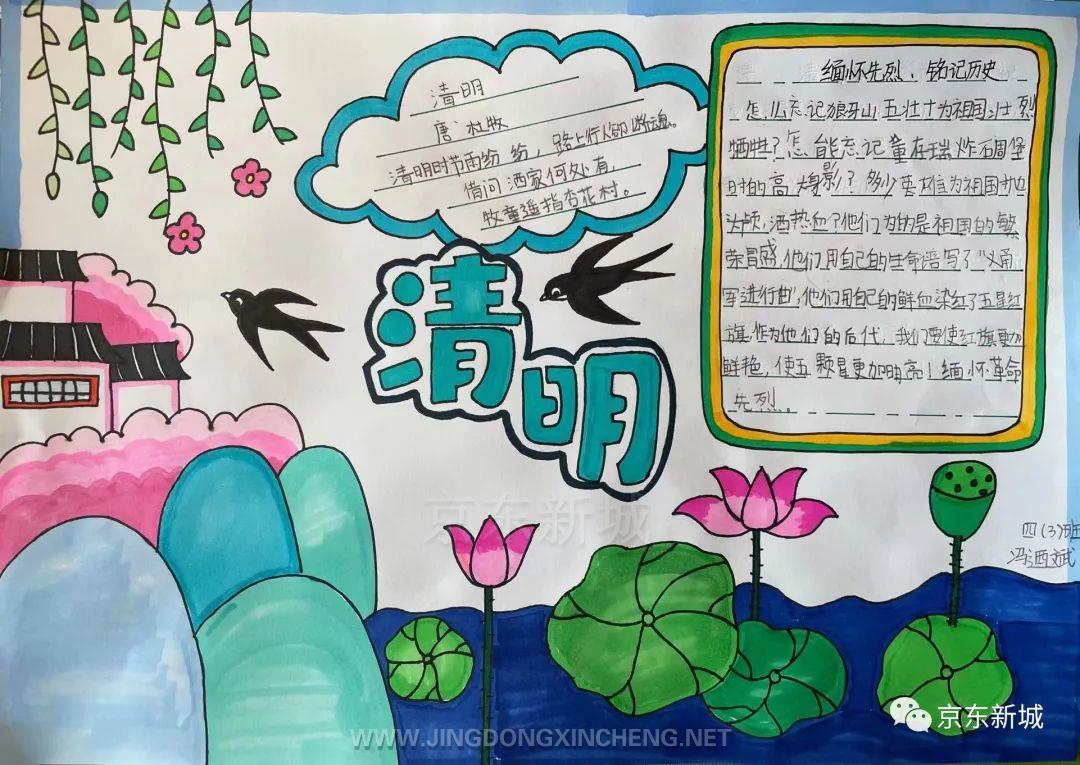 清明
唐·杜牧
清明时节雨纷纷，路上行人欲断魂。
借问酒家何处有，
牧童遥指杏花村。
清明
缅怀先烈、铭记历史
怎么忘记狼牙山五壮士为祖国壮烈
牺牲？怎能忘记董存瑞炸石周堡
时的高大身影？多少英雄为祖国抛
头颅，洒热血？他们为的是祖国的繁
荣昌盛，他们用自己的生命谱写了“义勇
军进行曲”，他们用自己的鲜血染红了五星红
旗，作为他们的后代，我们要使红旗更加
鲜艳，使五颗星更加明亮！缅怀革命
先烈。
四（3）班
冯酒斌
京东新城
京东新城
WWW.JINGDONGXINCHENG.NET